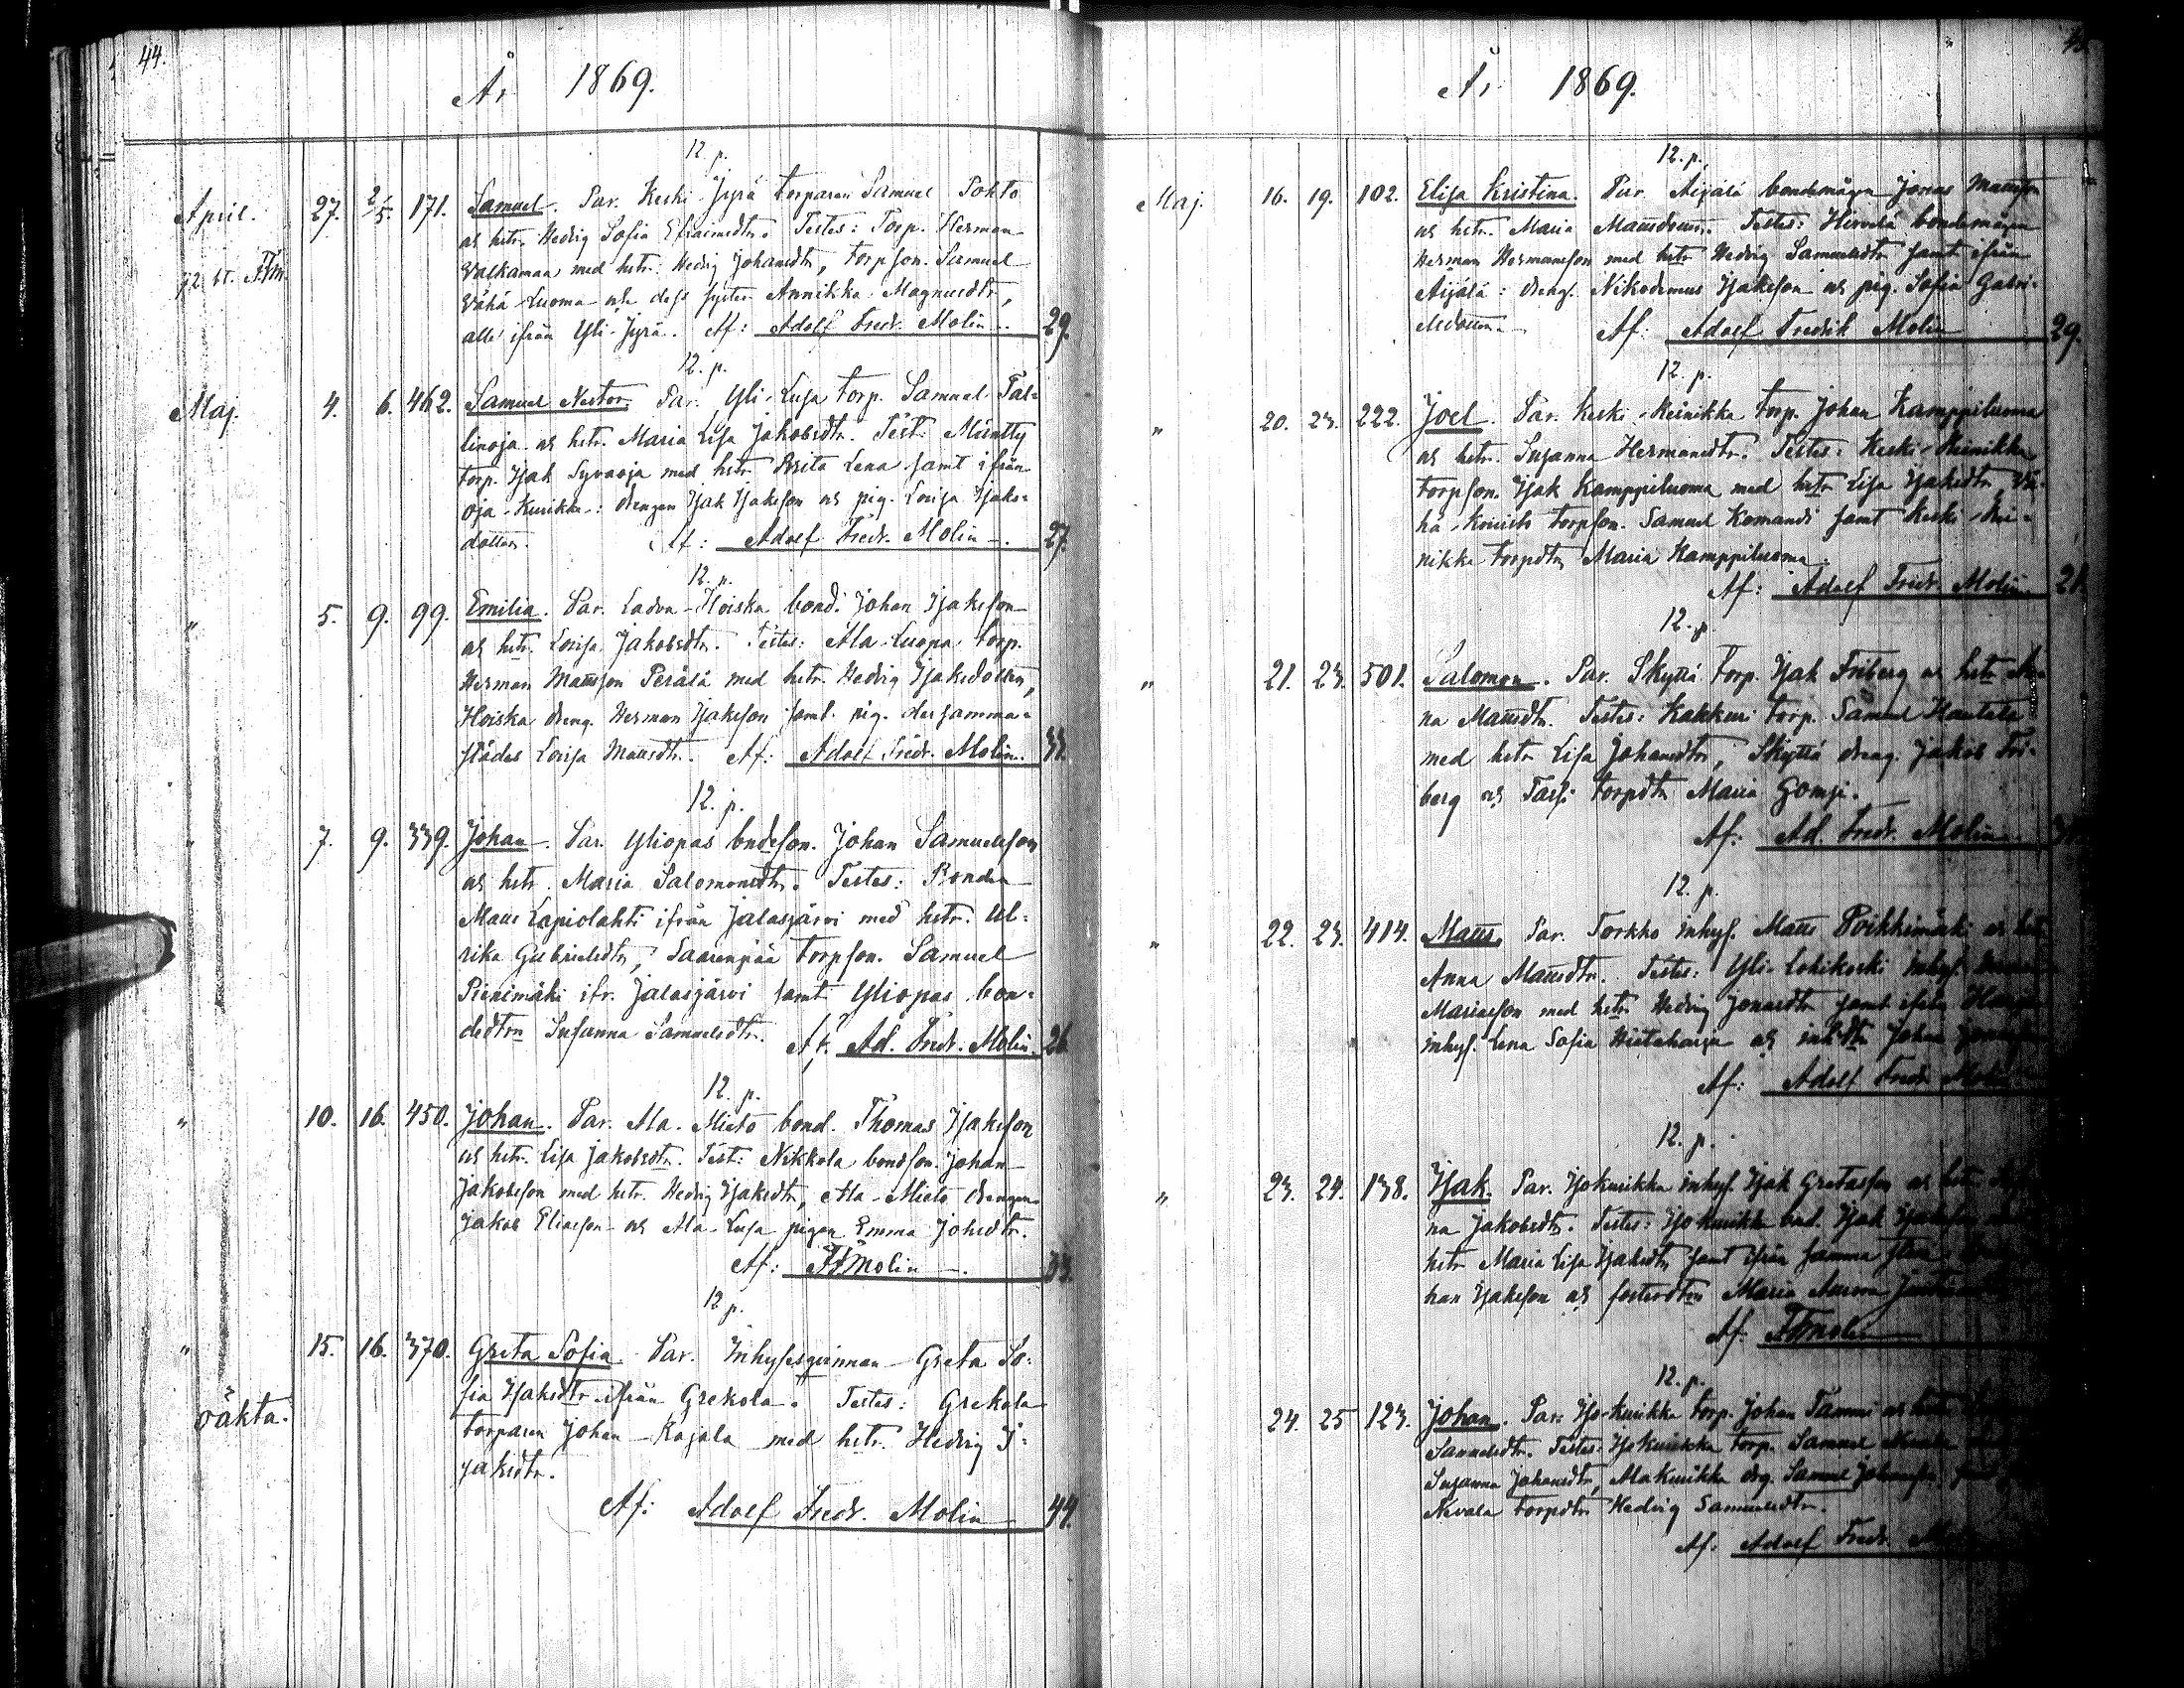 44.
År 1869.
12. p.
April. 27. 2/5. 171. Samuel. Par. Keski-Jyrä torparen Samuel Pohto
och hstr. Hedvig Sofia Efraimsdtr. Testes: Torp. Herman
Valkamaa med hstr. Hedvig Johansdtr, torpson. Samuel
Vähä-Luoma och dess syster Annikka Magnusdtr,
alla ifrån Yli-Jyrä. Af: Adolf Fredr. Molin. 29.
12. p.
Maj. 4. 6. 462. Samuel Nestor. Par. Yli-Lusa torp. Samuel Tal-
linoja och hstr. Maria Lisa Jakobsdtr. Test: Mäntty
torp. Isak Syvaoja med hstr. Brita Lena samt ifrån
Oja-Kurikka: drengen Isak Isaksson och pig. Lovisa Isaks-
dotter. Af: Adolf Fredr. Molin. 27.
12. p.
" 5. 9. 99. Emilia. Par. Ladva-Hoiska bond. Johan Isaksson
och hstr. Lovisa Jakobsdtr. Testes: Ala-Luopa torp.
Herman Mattsson Perälä med hstr. Hedvig Isaksdotter,
Hoiska dreng. Herman Isaksson samt pig. dersamma-
städes Lovisa Mattsdtr. Af: Adolf Fredr. Molin. 33.
12. p.
" 7. 9. 339. Johan. Par. Yliopas bndeson. Johan Samuelsson
och hstr. Maria Salomonsdtr. Testes: Bonden
Matts Lapiolahti ifrån Jalasjärvi med hstr. Ul-
rika Gabrielsdtr, Saarenpää torpson. Samuel
Pienimäki ifr. Jalasjärvi samt Yliopas bon-
dedtrn Susanna Samuelsdtr. Af. Ad. Fredr. Molin. 26.
12. p.
" 10. 16. 450. Johan. Par. Ala-Mieto bond. Thomas Isaksson
och hstr. Lisa Jakobsdtr. Test: Nikkola bondson. Johan
Jakobsson med hstr. Hedvig Isaksdtr, Ala-Mieto drengen
Jakob Eliasson och Ala-Lusa pigan Emma Johsdtr.
Af: AFMolin. 33.
12 p.
" 15. 16. 370. Greta Sofia. Par. Inhysesqvinnan Greta So-
oäkta. fia Isaksdtr ifrån Grekola. Testes: Grekola
torparen Johan Rajala med hstr. Hedvig I-
saksdtr.
Af: Adolf Fredr. Molin 44.
År 1869.
12. p.
Maj. 16. 19. 102. Elisa Kristina. Par. Äijälä bondemågen Jonas Mattsson
och hstr. Maria Mattsdotter. Testes: Hirvelä bondemågen
Herman Hermansson med hstr Hedvig Samuelsdtr samt ifrån
Äijälä: drengs. Nikodemus Isaksson och pig. Sofia Gabri-
elsdotter. Af: Adolf Fredrik Molin 29.
12. p.
" 20. 23. 222. Joel. Par. Keski-Reinikka torp. Johan Kamppiluoma
och hstr. Susanna Hermansdtr. Testes: Keski-Reinikka
torpson. Isak Kamppiluoma med hstr Lisa Isaksdtr, Vä-
hä torpson. Samuel Komandi samt Keski-Rei-
nikka torpdtr Maria Kamppiluoma.
Af: Adolf Fredr. Molin. 21.
12. p.
" 21. 23. 501. Salomon. Par. Skyttä torp. Isak Friberg och hstr
na Mattsdtr. Testes: Kakkuri torp. Samuel Hautala
med hstr Lisa Johansdtr, Skyttä dreng. Jakob Fri-
berg och torpdtr Maria
Af: Ad. Fredr. Molin.
12. p.
" 22. 23. 414. Matts. Par. Torkko inhys. Matts Poikkimäki och hstr
Anna Mattsdtr. Testes: Yli-Lohikoski inhys.
Mariasson med hstr. Hedvig Jonasdtr samt ifrån
inhys. Lena Sofia Hietaharju och Johan
Af: Adolf Fredr. Molin
12. p.
" 23. 24. 138. Isak. Par. Isokurikka inhys. Isak Gretasson och hstr
na Jakobsdtr. Testes: Isokurikka bnd. Isak
hstr Maria Lisa Isaksdtr samt ifrån samma
han Isaksson och fosterdtrn Maria
Af. AFMolin
12. p.
24. 25 123. Johan. Par: Iso-Kurikka torp. Johan Tammi och hstr
Samuelsdtr. Testes: Isokurikka torp. Samuel
Susanna Johansdtr, Alakurikka drg. Samuel
Nevala torpdtr Hedvig Samuelsdtr.
Af. Adolf Fredr.